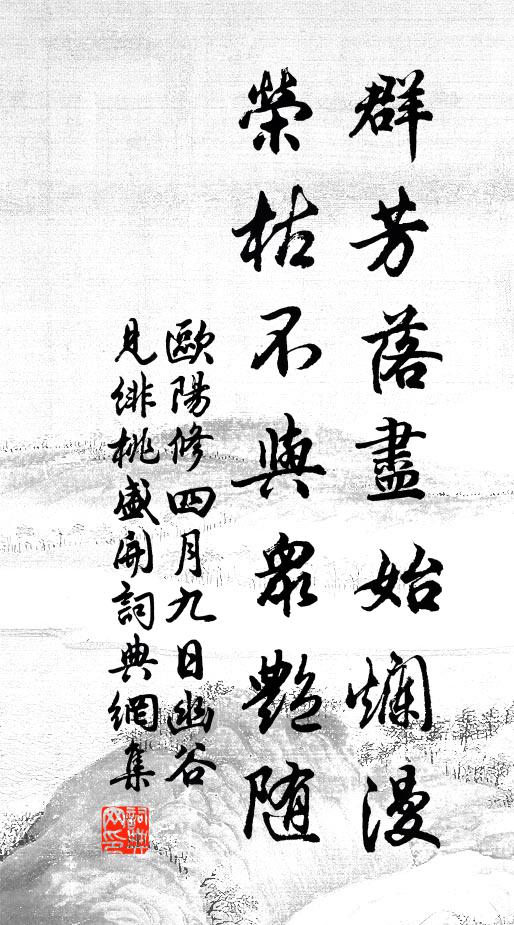 群芳落盡始爛漫
榮枯不與衆艷随
歐陽修四月九日幽谷
見緋桃盛開詞典網集